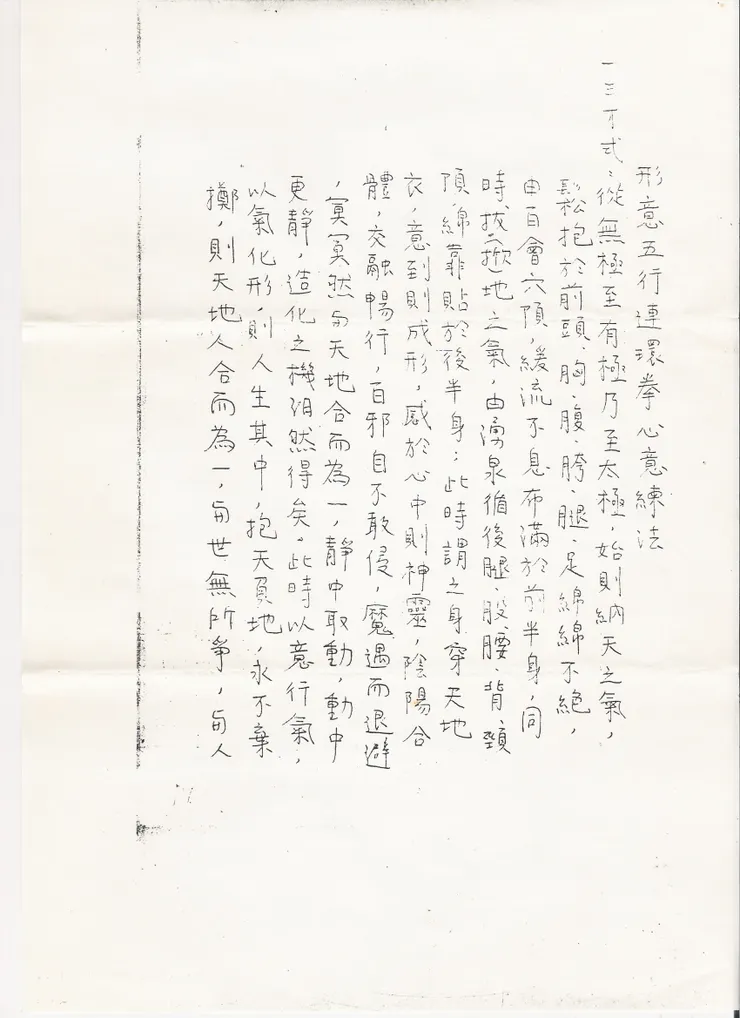 形意五行連環拳心意練法
一三才式：從無極至有極乃至太極，始則納天之氣，
由百會穴頂，緩流不息布滿於前半身，同
鬆鬆抱於前頭、胸、腹、胯、腿、足綿綿不絕，
時拔(掀)地之氣，由湧泉循後腿、股、腰、背、頸
頂，綿靠貼於後半身；此時謂之身穿天地
衣，意到則成形，感於心中則神靈，陰陽合
體，交融暢行，百邪自不敢侵，魔遇而退避
，冥冥然與天地合而為一，靜中取動，動中
更靜，造化之機渙然得矣。此時以意行氣，
以氣化形，則人生其中，抱天負地，永不棄
擲，則天地人合而為一，與世無所爭，與人